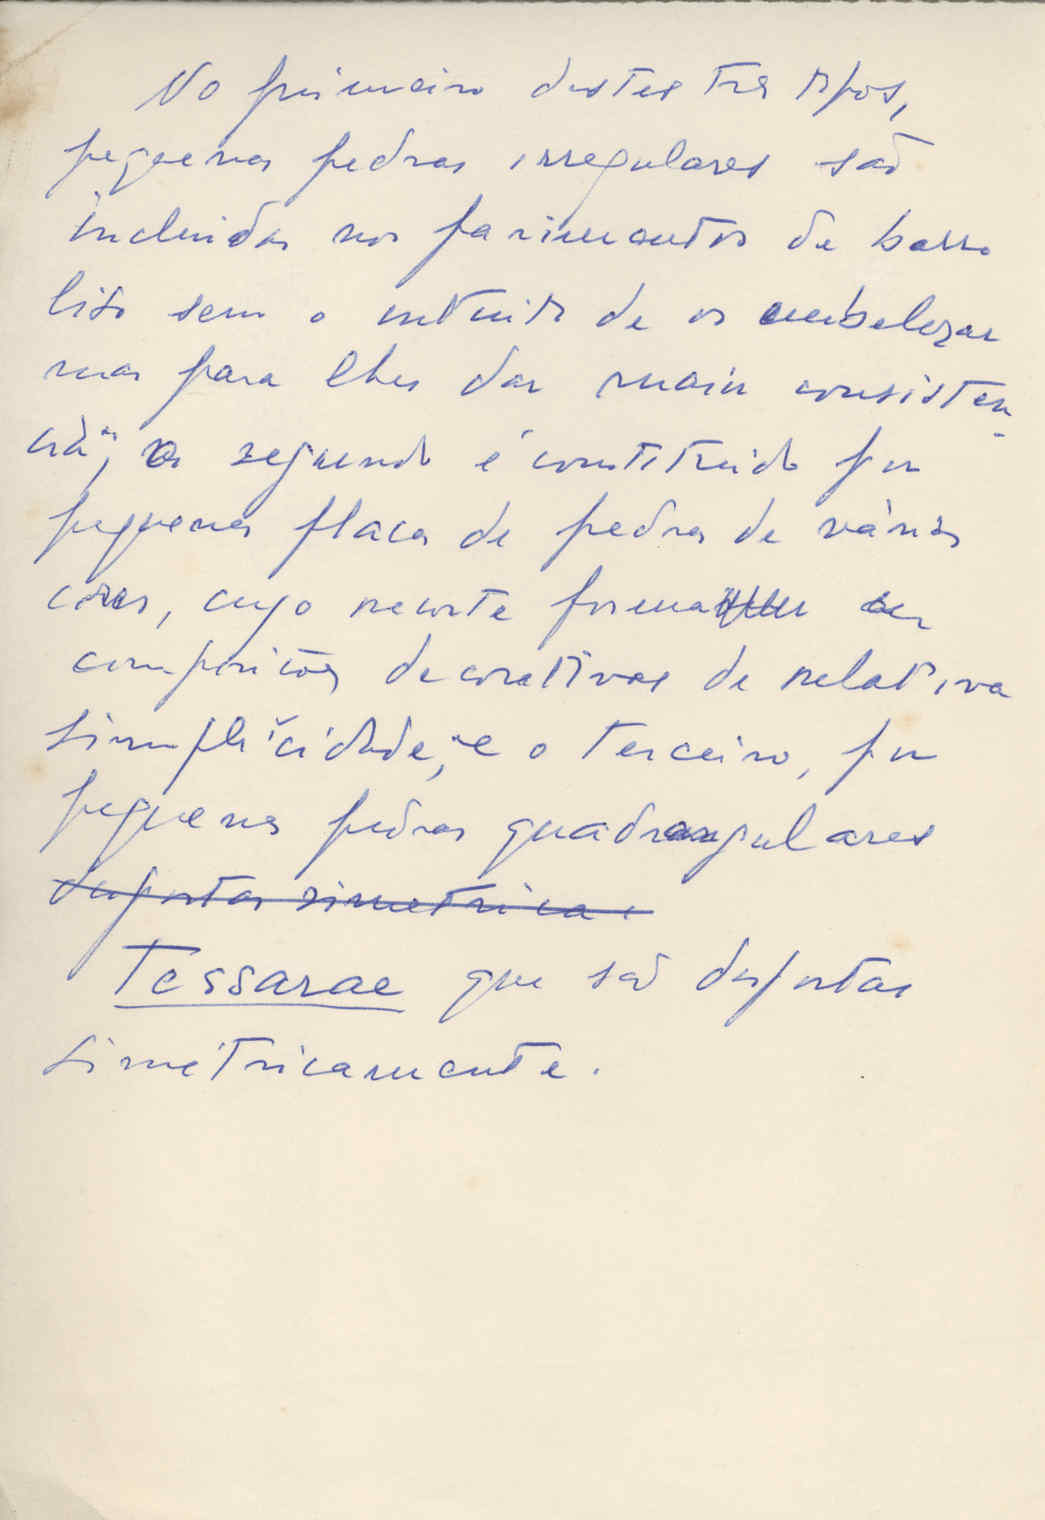 No primeiro destes três tipos,
pequenas pedras irregulares são
incluidas nos pavimentos de barro
liso sem o intuito de os embelezar
mas para lhes dar mais consisten-
cia", o segundo é constituido por
pequenas placas de pedras de várias
cores, cujo recorte forma
composições decorativas de relativa
simplicidade, "e o terceiro, por
pequenas pedras quadrangulares
dispostas simetrica
Tessarae que são dispostas
simétricamente.